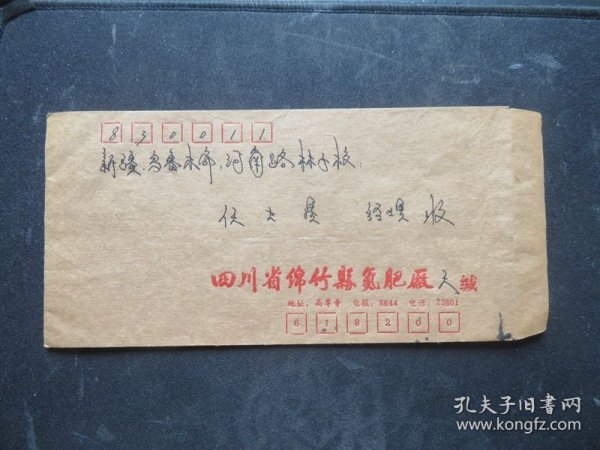 830011
新疆.乌鲁木齐,河南路林子校.
任大 经理 收
四川省绵竹县氮肥厂 天 缄
地址:高尊寺 电报:8644 电话:22601
618200
孔夫子旧书网
www.kongfz.com